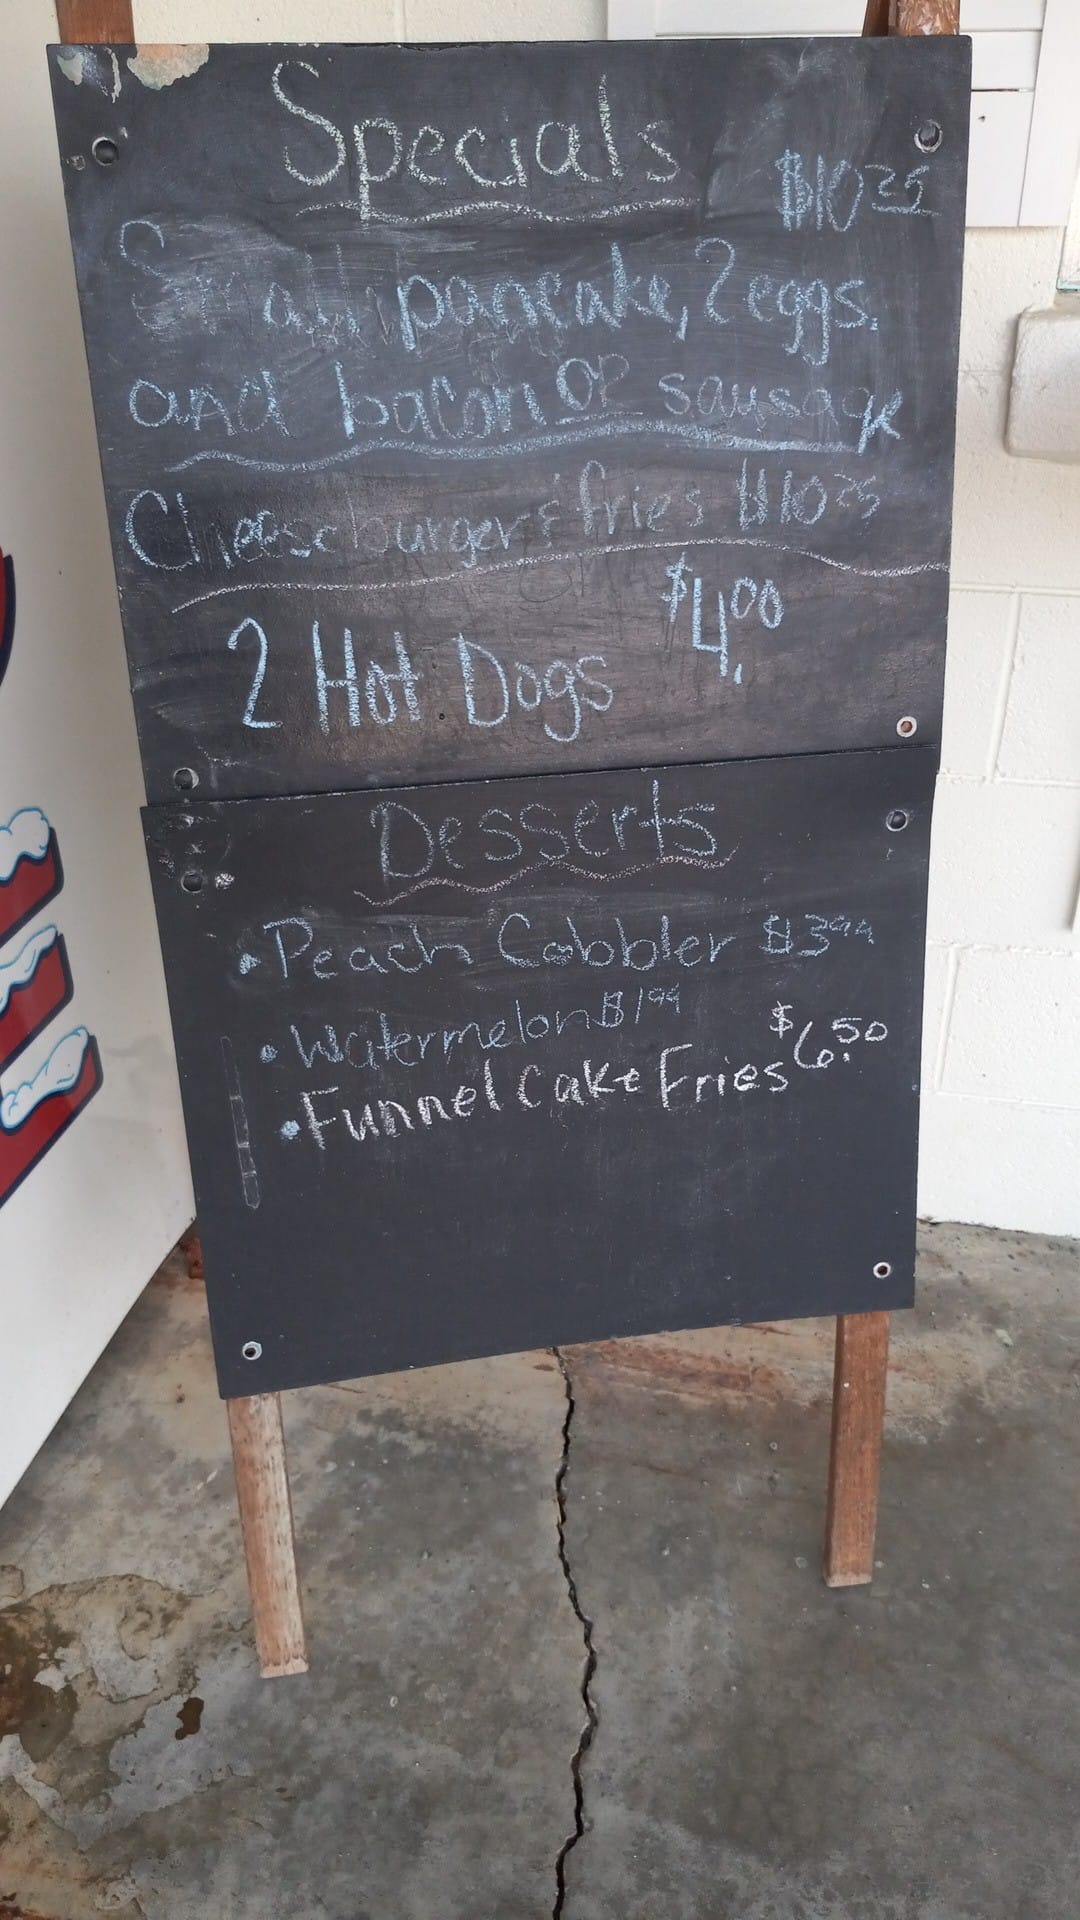 Specials
$10 25
Small pancake, 2 eggs,
and bacon or sausage
Cheeseburger & fries $10 25
2 Hot Dogs $4.00
Desserts
• Peach Cobbler $3 99
• Watermelon $1 99
• Funnel Cake Fries $6.50